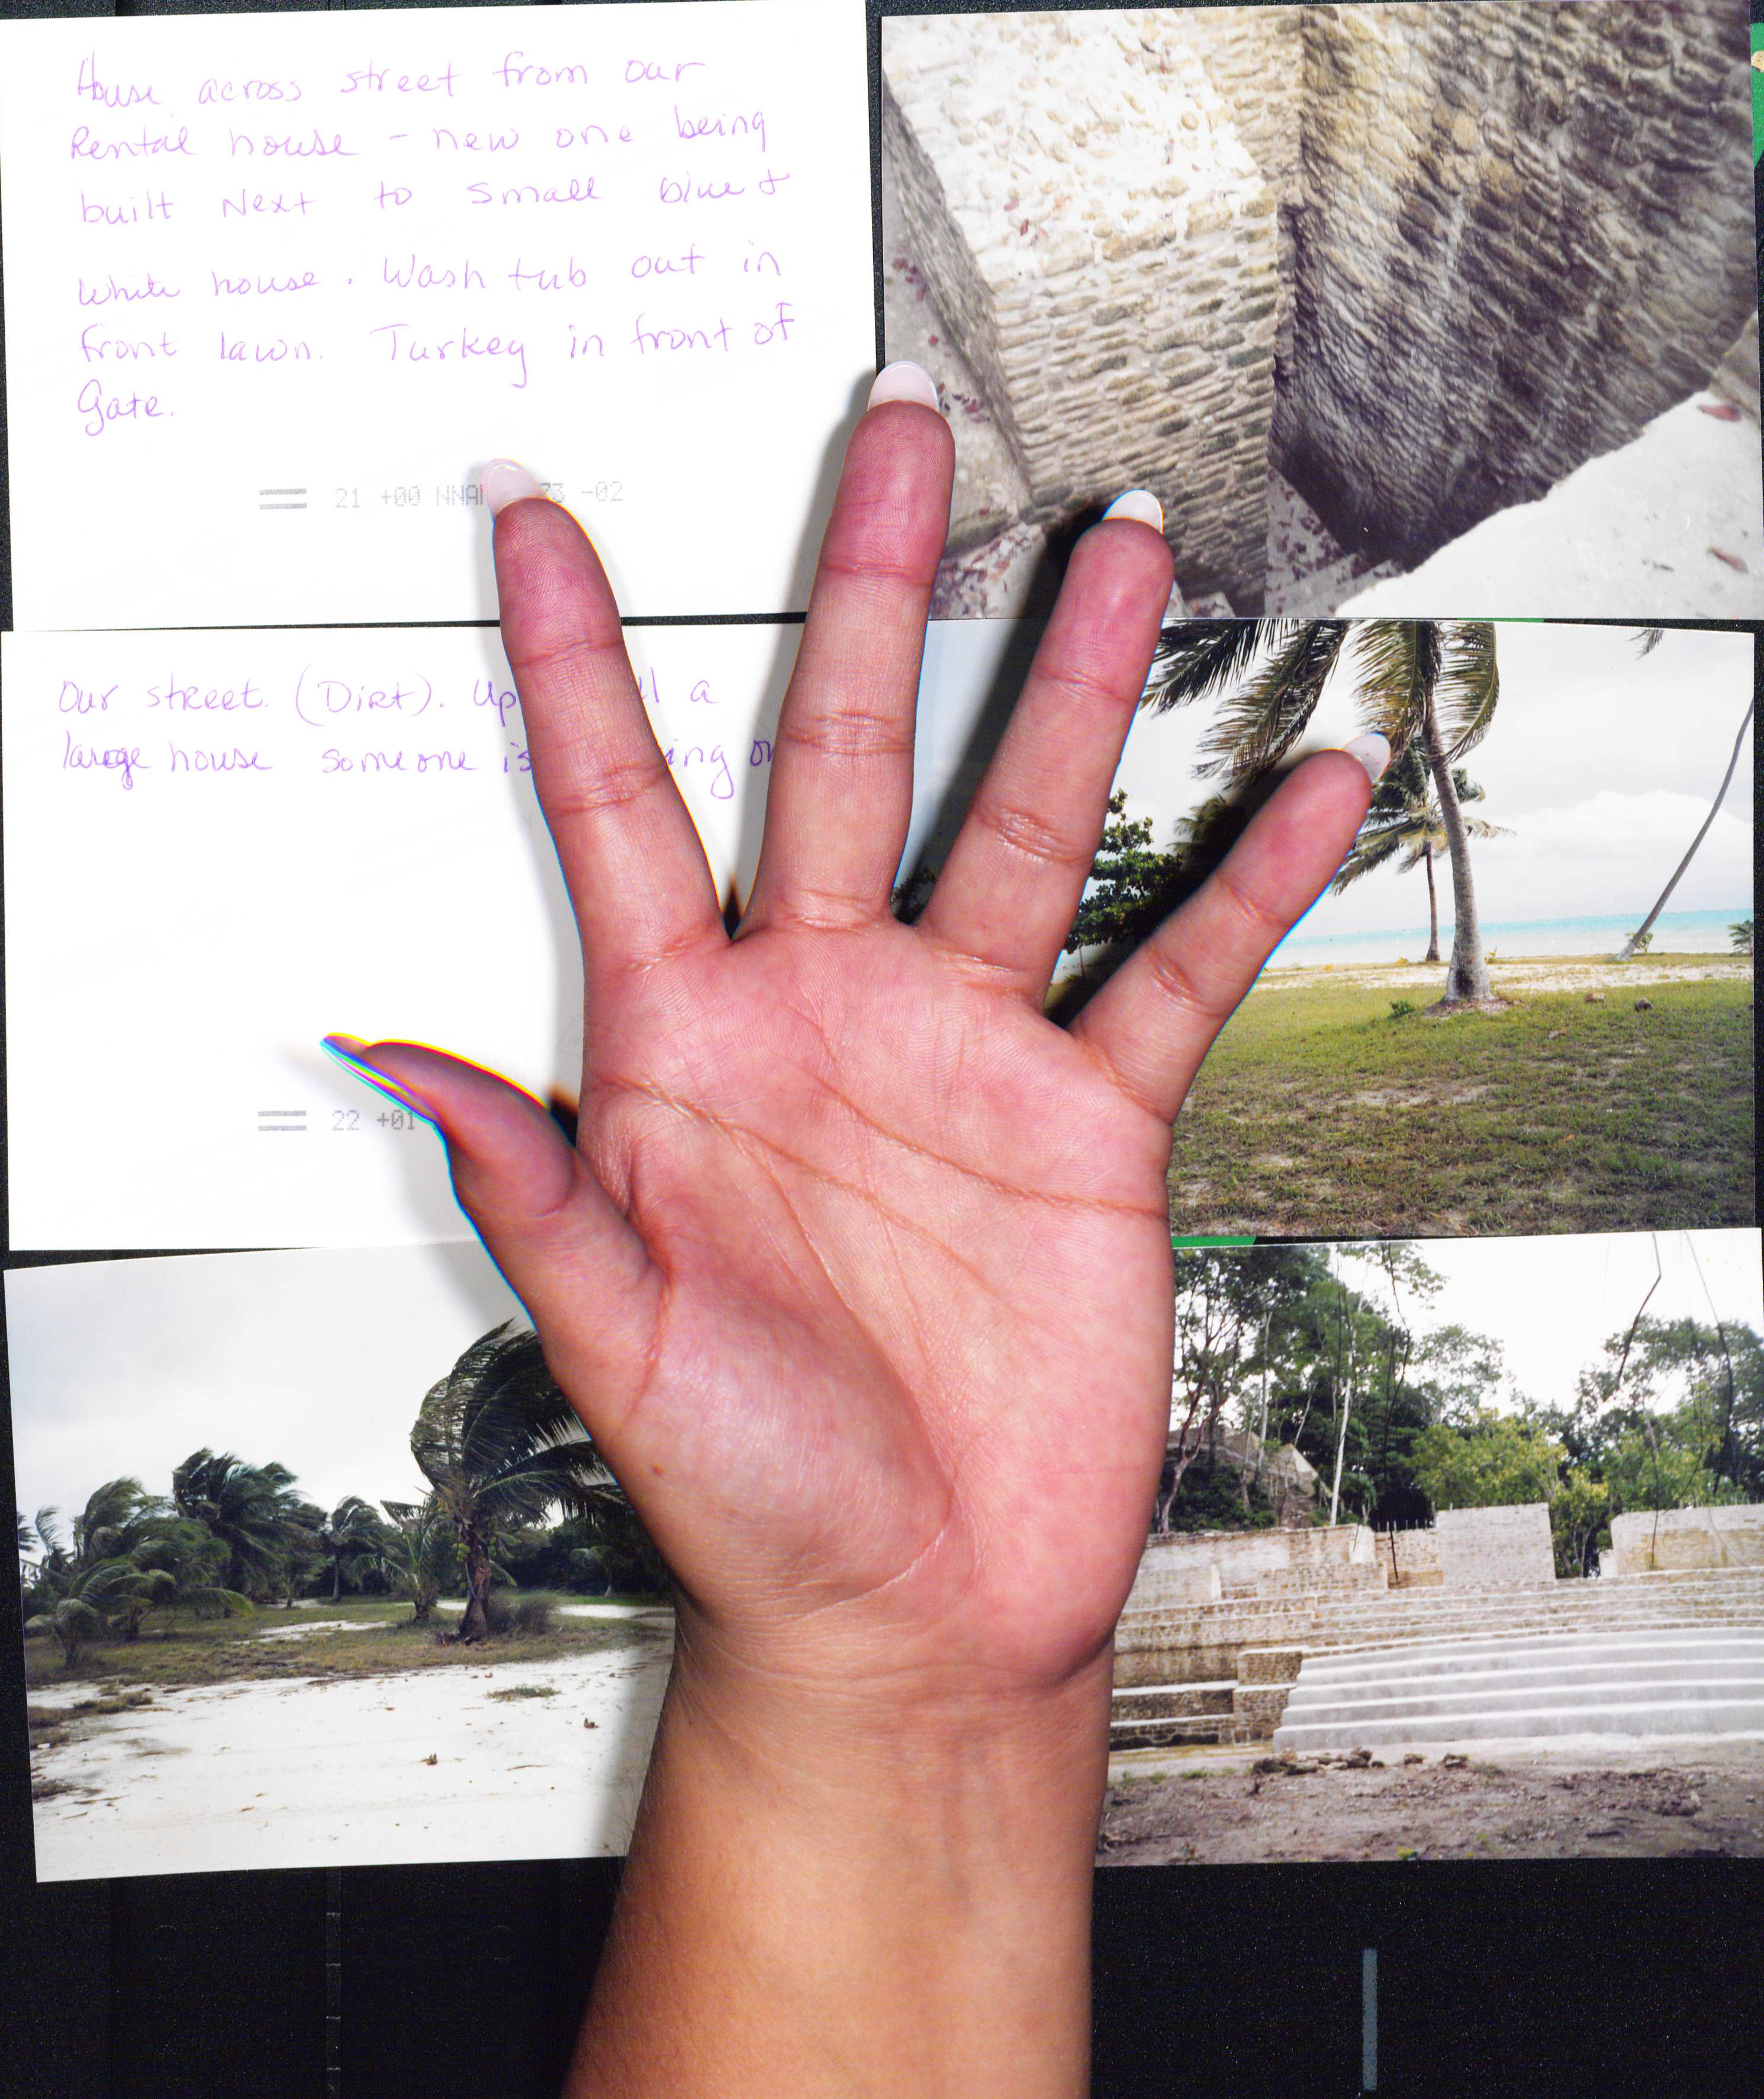 House across street from our
Rental house - new one being
built Next to small blue &
White house. Wash tub out in
front lawn. Turkey in front of
Gate.
21 +00 NNA 73 -02
Our street. (Dirt). Up a
large house someone is
22 +01